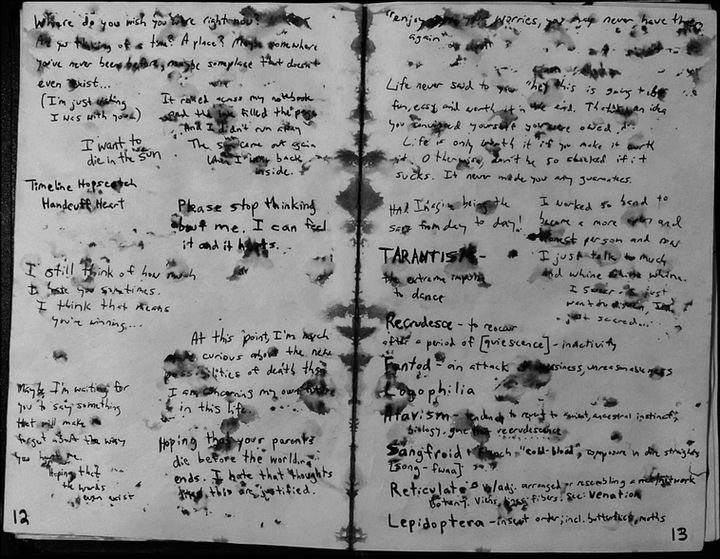 Where do you wish you were right now?
Are you thinking of a time? A place? Maybe somewhere
you've never been before, maybe someplace that doesn't
even exist...
(I'm just wishing
I was with you)
It rained across my notebook
and the ink filled the page
And I didn't run away
The sun came out again
when I went back
inside.
I want to
die in the sun
Timeline Hopscotch
Handcuff Heart
Please stop thinking
about me. I can feel
it and it hurts...
I still think of how much
I hate you sometimes.
I think that means
you're winning...
At this point I'm much
more curious about the new
possibilities of death than
I am concerning my own future
in this life.
Maybe I'm waiting for
you to say something
that will make
forget about the way
you hurt me.
Hoping that
the words
even exist
Hoping that your parents
die before the world
ends. I hate that thoughts
like this are justified.
12
"enjoy your worries, you may never have them
again"
Life never said to you "hey this is going to be
fun, easy, and worth it in the end. That's an idea
you convinced yourself you were owed.
Life is only worth it if you make it worth
it. Otherwise, don't be so shocked if it
sucks. It never made you any guarantees.
HA! Imagine being the
same from day to day!
I worked so hard to
become a more open and
honest person and now
I just talk too much
and whine whine whine.
I swear I just
TARANTISM -
the extreme impulse
to dance
Recrudesce - to reoccur
after a period of [quiescence] - inactivity
Fantod - an attack of uneasiness, unreasonableness
Logophilia
Atavism - tendency to revert to ancient, ancestral instinct,
biology, genetic recrudescence
Sangfroid - French "cold-blood", composure in dire straights
[song-fwaa]
Reticulate - v/adj. arranged or resembling a net/network
Botany. Veins, fibers. See: venation
Lepidoptera - insect order; incl. butterflies, moths
13